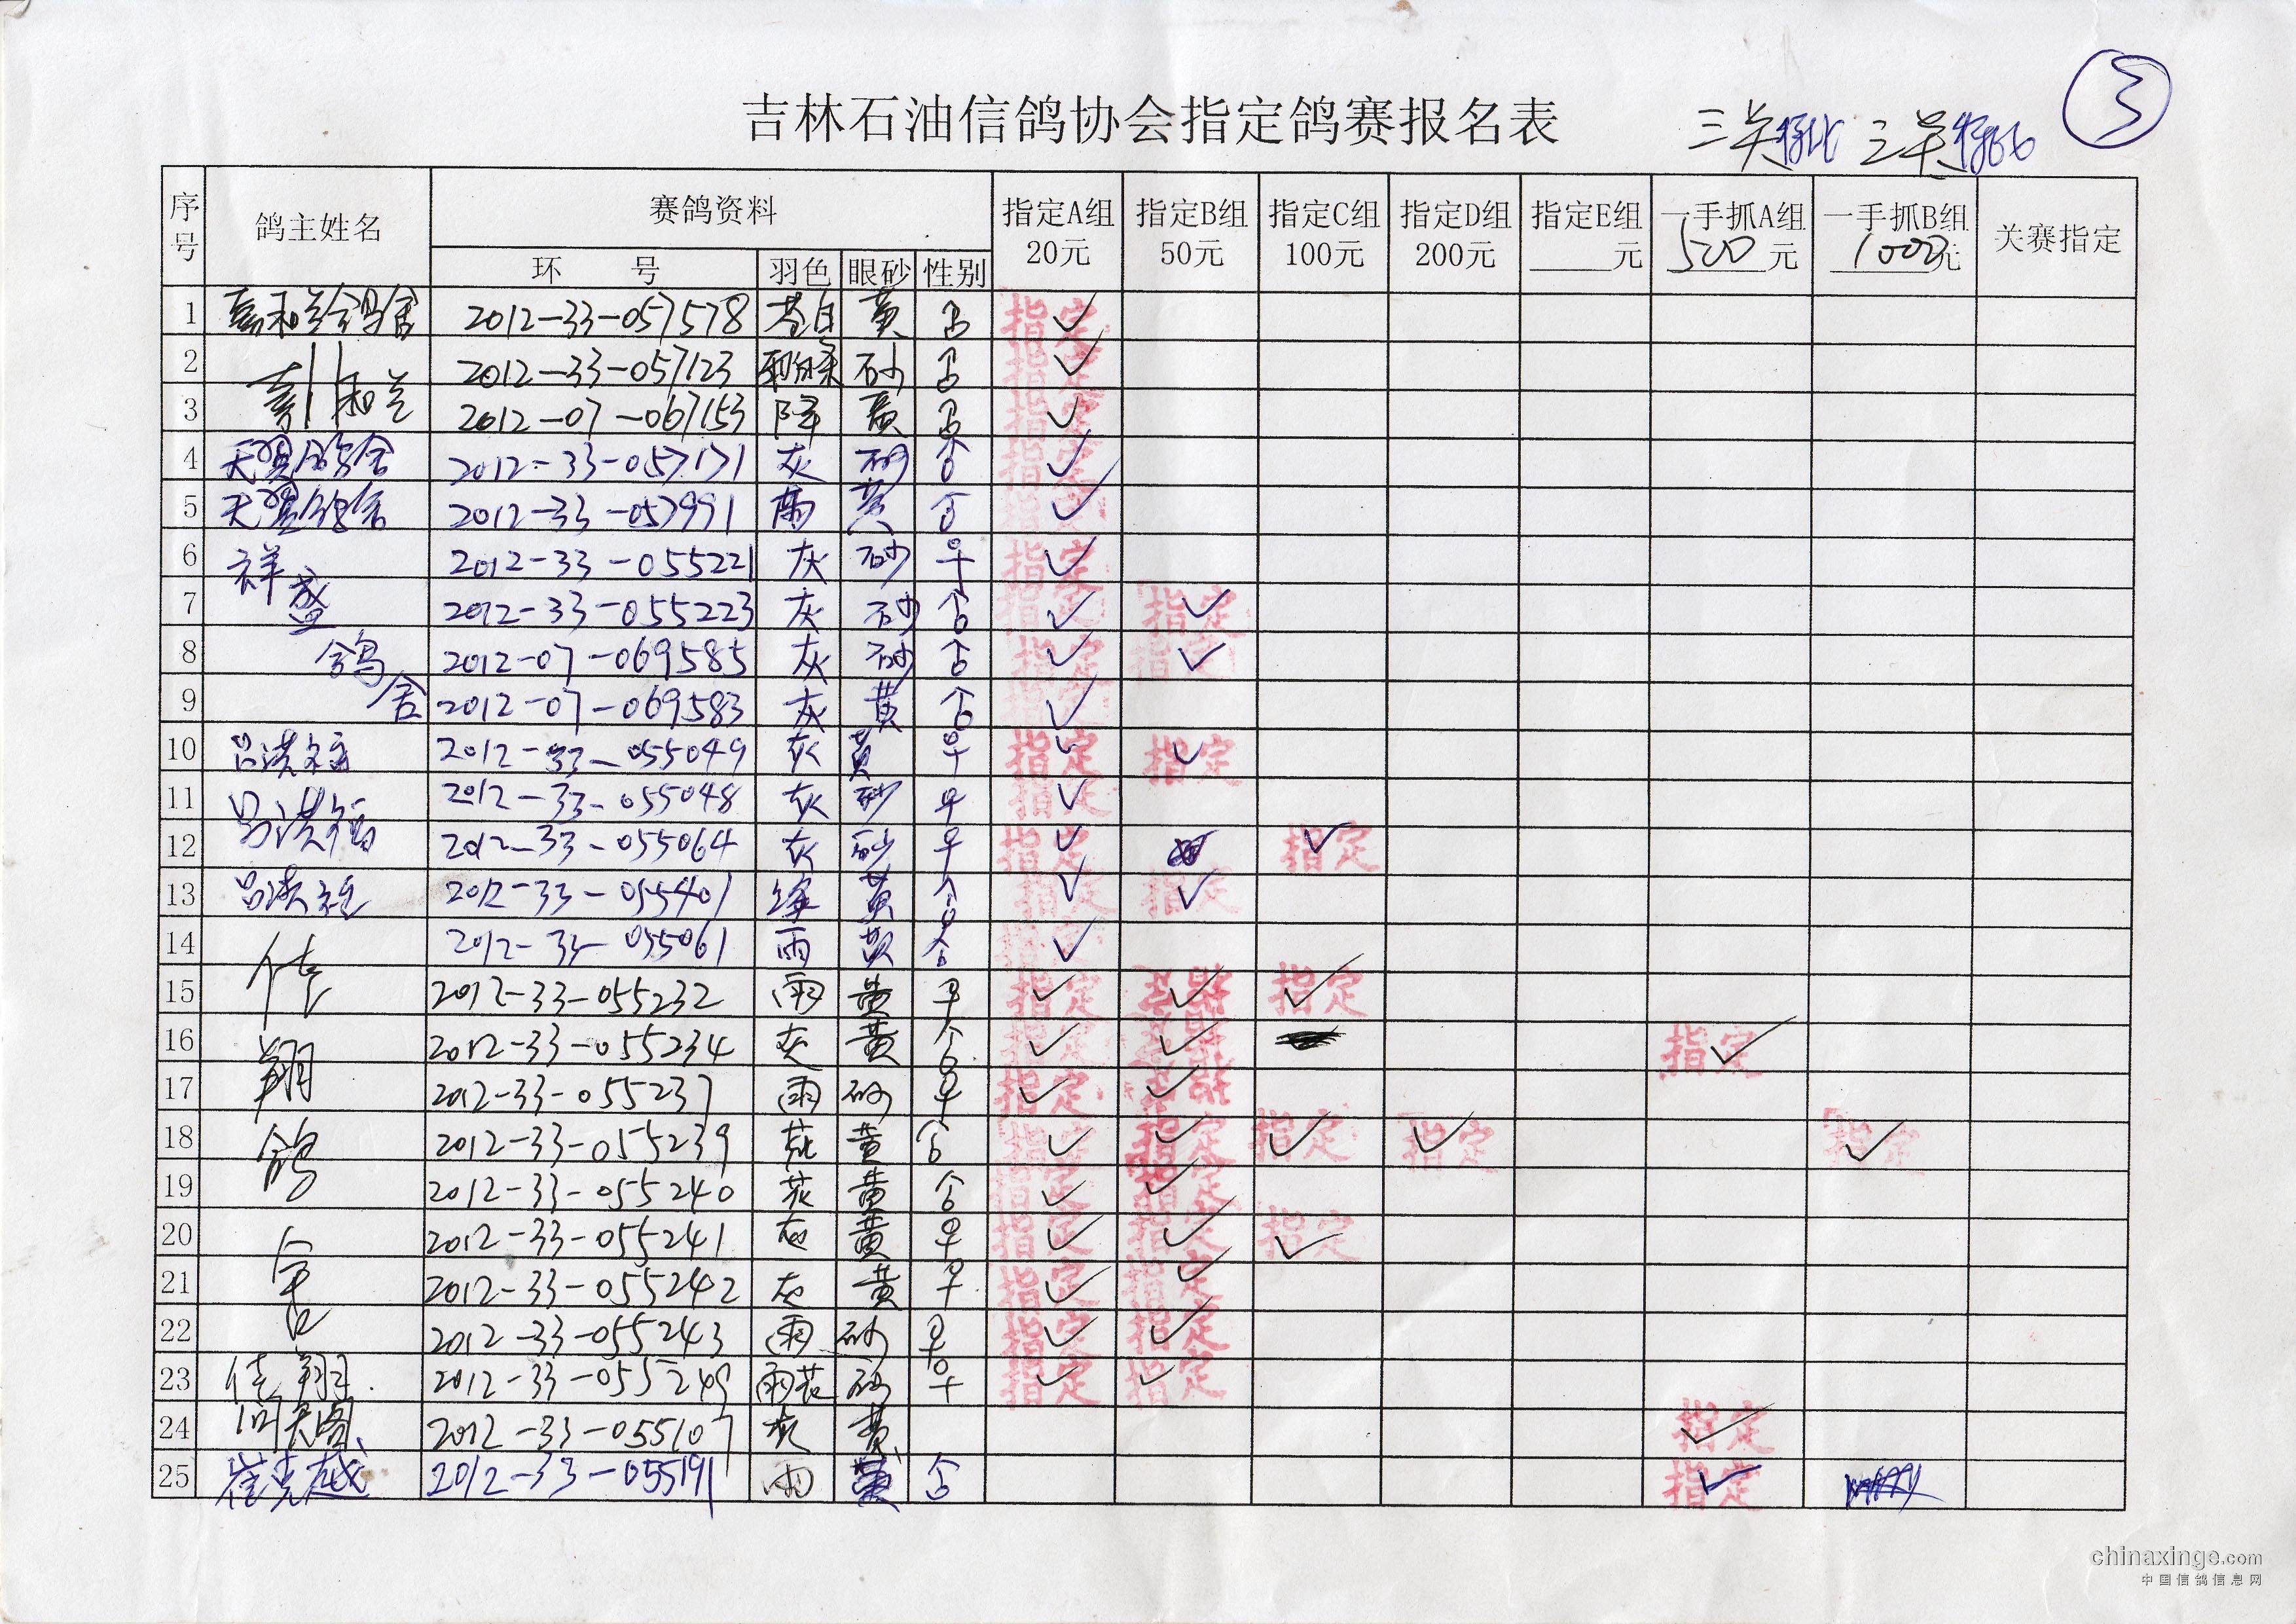 吉林石油信鸽协会指定鸽赛报名表
三关 三关 3
序号 鸽主姓名 赛鸽资料 指定A组 20元 指定B组 50元 指定C组 100元 指定D组 200元 指定E组 ____元 一手抓A组 500元 一手抓B组 1000元 关赛指定
环 号 羽色 眼砂 性别
1 2012-33-057578 黄 指定 ✓
2 2012-33-057123 砂 指定 ✓
3 2012-07-067153 绛 黄 指定 ✓
4 天翼鸽舍 2012-33-057171 灰 砂 指定 ✓
5 天翼鸽舍 2012-33-057991 雨 黄 指定 ✓
6 祥 2012-33-055221 灰 砂 ♀ 指定 ✓
7 盛 2012-33-055223 灰 砂 指定 ✓ 指定 ✓
8 鸽 2012-07-069585 灰 砂 指定 ✓ 指定 ✓
9 舍 2012-07-069583 灰 黄 指定 ✓
10 吕洪福 2012-33-055049 灰 黄 ♀ 指定 ✓ 指定 ✓
11 吕洪福 2012-33-055048 灰 砂 ♀ 指定 ✓
12 2012-33-055064 灰 砂 ♀ 指定 ✓ 指定 ✓
13 吕洪福 2012-33-055401 绛 黄 指定 ✓ 指定 ✓
14 佳 2012-33-055061 雨 黄 指定 ✓
15 2012-33-055232 雨 黄 ♀ 指定 ✓ 指定 ✓ 指定 ✓
16 翔 2012-33-055234 灰 黄 指定 ✓ 指定 ✓ 指定 ✓
17 2012-33-055237 雨 砂 ♀ 指定 ✓ 指定 ✓
18 鸽 2012-33-055239 花 黄 指定 ✓ 指定 ✓ 指定 ✓ 指定 ✓ 指定 ✓
19 2012-33-055240 花 黄 指定 ✓ 指定 ✓
20 舍 2012-33-055241 灰 黄 ♀ 指定 ✓ 指定 ✓ 指定 ✓
21 2012-33-055242 灰 黄 ♀ 指定 ✓ 指定 ✓
22 2012-33-055243 雨 砂 ♀ 指定 ✓ 指定 ✓
23 佳翔 2012-33-055249 雨花 砂 ♀ 指定 ✓ 指定 ✓
24 2012-33-055107 灰 黄 指定 ✓
25 崔克越 2012-33-055191 雨 黄 指定 ✓
chinaxinge.com
中国信鸽信息网